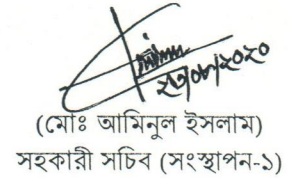 ২৩/০৮/২০২০
(মোঃ আমিনুল ইসলাম)
সহকারী সচিব (সংস্থাপন-১)